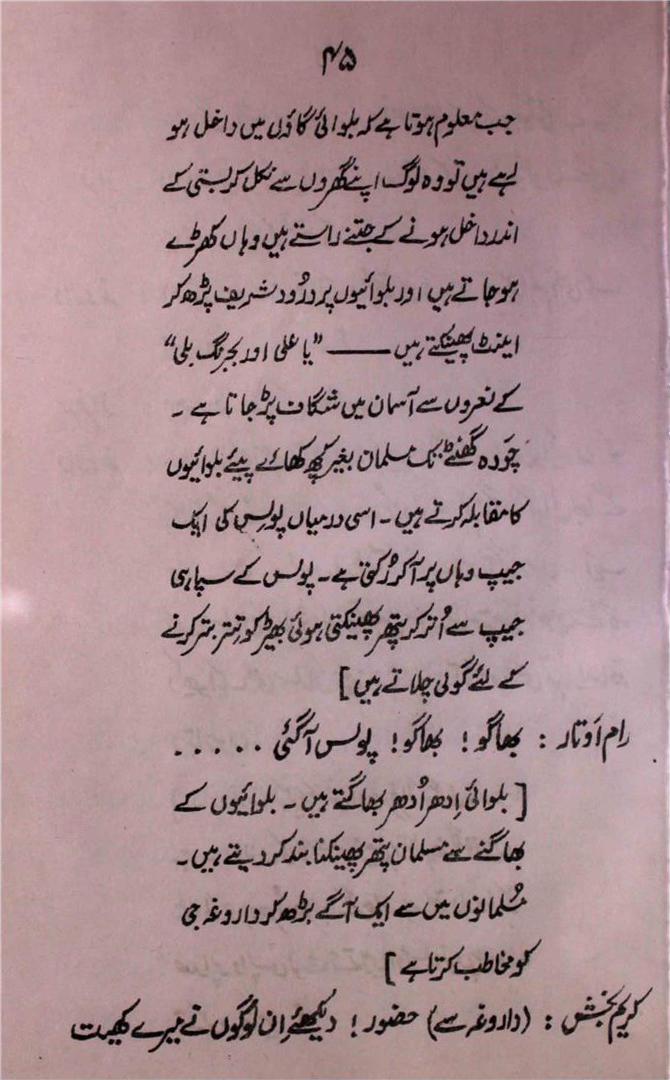 ۴۵
جب معلوم ہوتا ہے کہ بلوائی گاؤں میں داخل ہو
رہے ہیں تو وہ لوگ اپنے گھروں سے نکل کر بستی کے
اندر داخل ہونے کے جتنے راستے ہیں وہاں کھڑے
ہو جاتے ہیں اور بلوائیوں پر درُود شریف پڑھ کر
اینٹ پھینکتے ہیں ——— ”یا علی اور بجرنگ بلی“
کے نعروں سے آسمان میں شگاف پڑ جاتا ہے ۔
چَودہ گھنٹے تک مسلمان بغیر کچھ کھائے پیئے بلوائیوں
کا مقابلہ کرتے ہیں ۔ اسی درمیان پولس کی ایک
جیپ وہاں پر آکر رُکتی ہے ۔ پولس کے سپاہی
جیپ سے اُتر کر پتھر پھینکتی ہوئی بھیڑ کو تِتر بتر کرنے
کے لئے گولی چلاتے ہیں ]
رام اَوتار : بھاگو ! بھاگو ! پولس آگئی ۰۰۰۰۰
[ بلوائی اِدھر اُدھر بھاگتے ہیں ۔ بلوائیوں کے
بھاگنے سے مسلمان پتھر پھینکنا بند کر دیتے ہیں ۔
مُسلمانوں میں سے ایک آگے بڑھ کر داروغہ جی
کو مخاطب کرتا ہے ]
کریم بخش : (داروغہ سے) حضور ! دیکھئے اِن لوگوں نے میرے کھیت